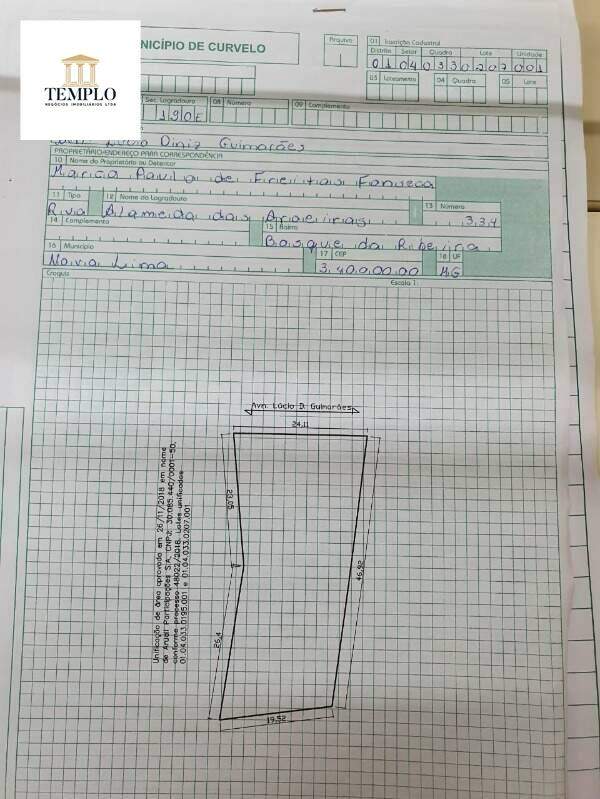 TEMPLO
NEGÓCIOS IMOBILIÁRIOS LTDA
NICÍPIO DE CURVELO
Arquivo
01 Inscrição Cadastral
Distrito Setor Quadra Lote Unidade
01 04 033 0207 001
03 Loteamento 04 Quadra 05 Lote
Sec. Logradouro 08 Número 09 Complemento
190E
Lucio Diniz Guimarães
PROPRIETÁRIO-ENDEREÇO PARA CORRESPONDÊNCIA
10 Nome do Proprietário ou Detentor
Marcia Pavila de Freitas Fonseca
11 Tipo 12 Nome do Logradouro 13 Número
Rua Alameda das Aroeiras 334
14 Complemento 15 Bairro
Bosque da Ribeira
16 Município 17 CEP 18 UF
Nova Lima 3.40.00.00.00 MG
Croquis Escala 1:
Avn. Lúcio D. Guimarães
24,11
23,05
46,92
26,4
19,52
Unificação de área aprovada em 26/11/2018 em nome
de Aruall Participações S/A, CNPJ: 30.085.440/0001-50,
conforme processo 48022/2018. Lotes unificados
01.04.033.0195.001 e 01.04.033.0207.001